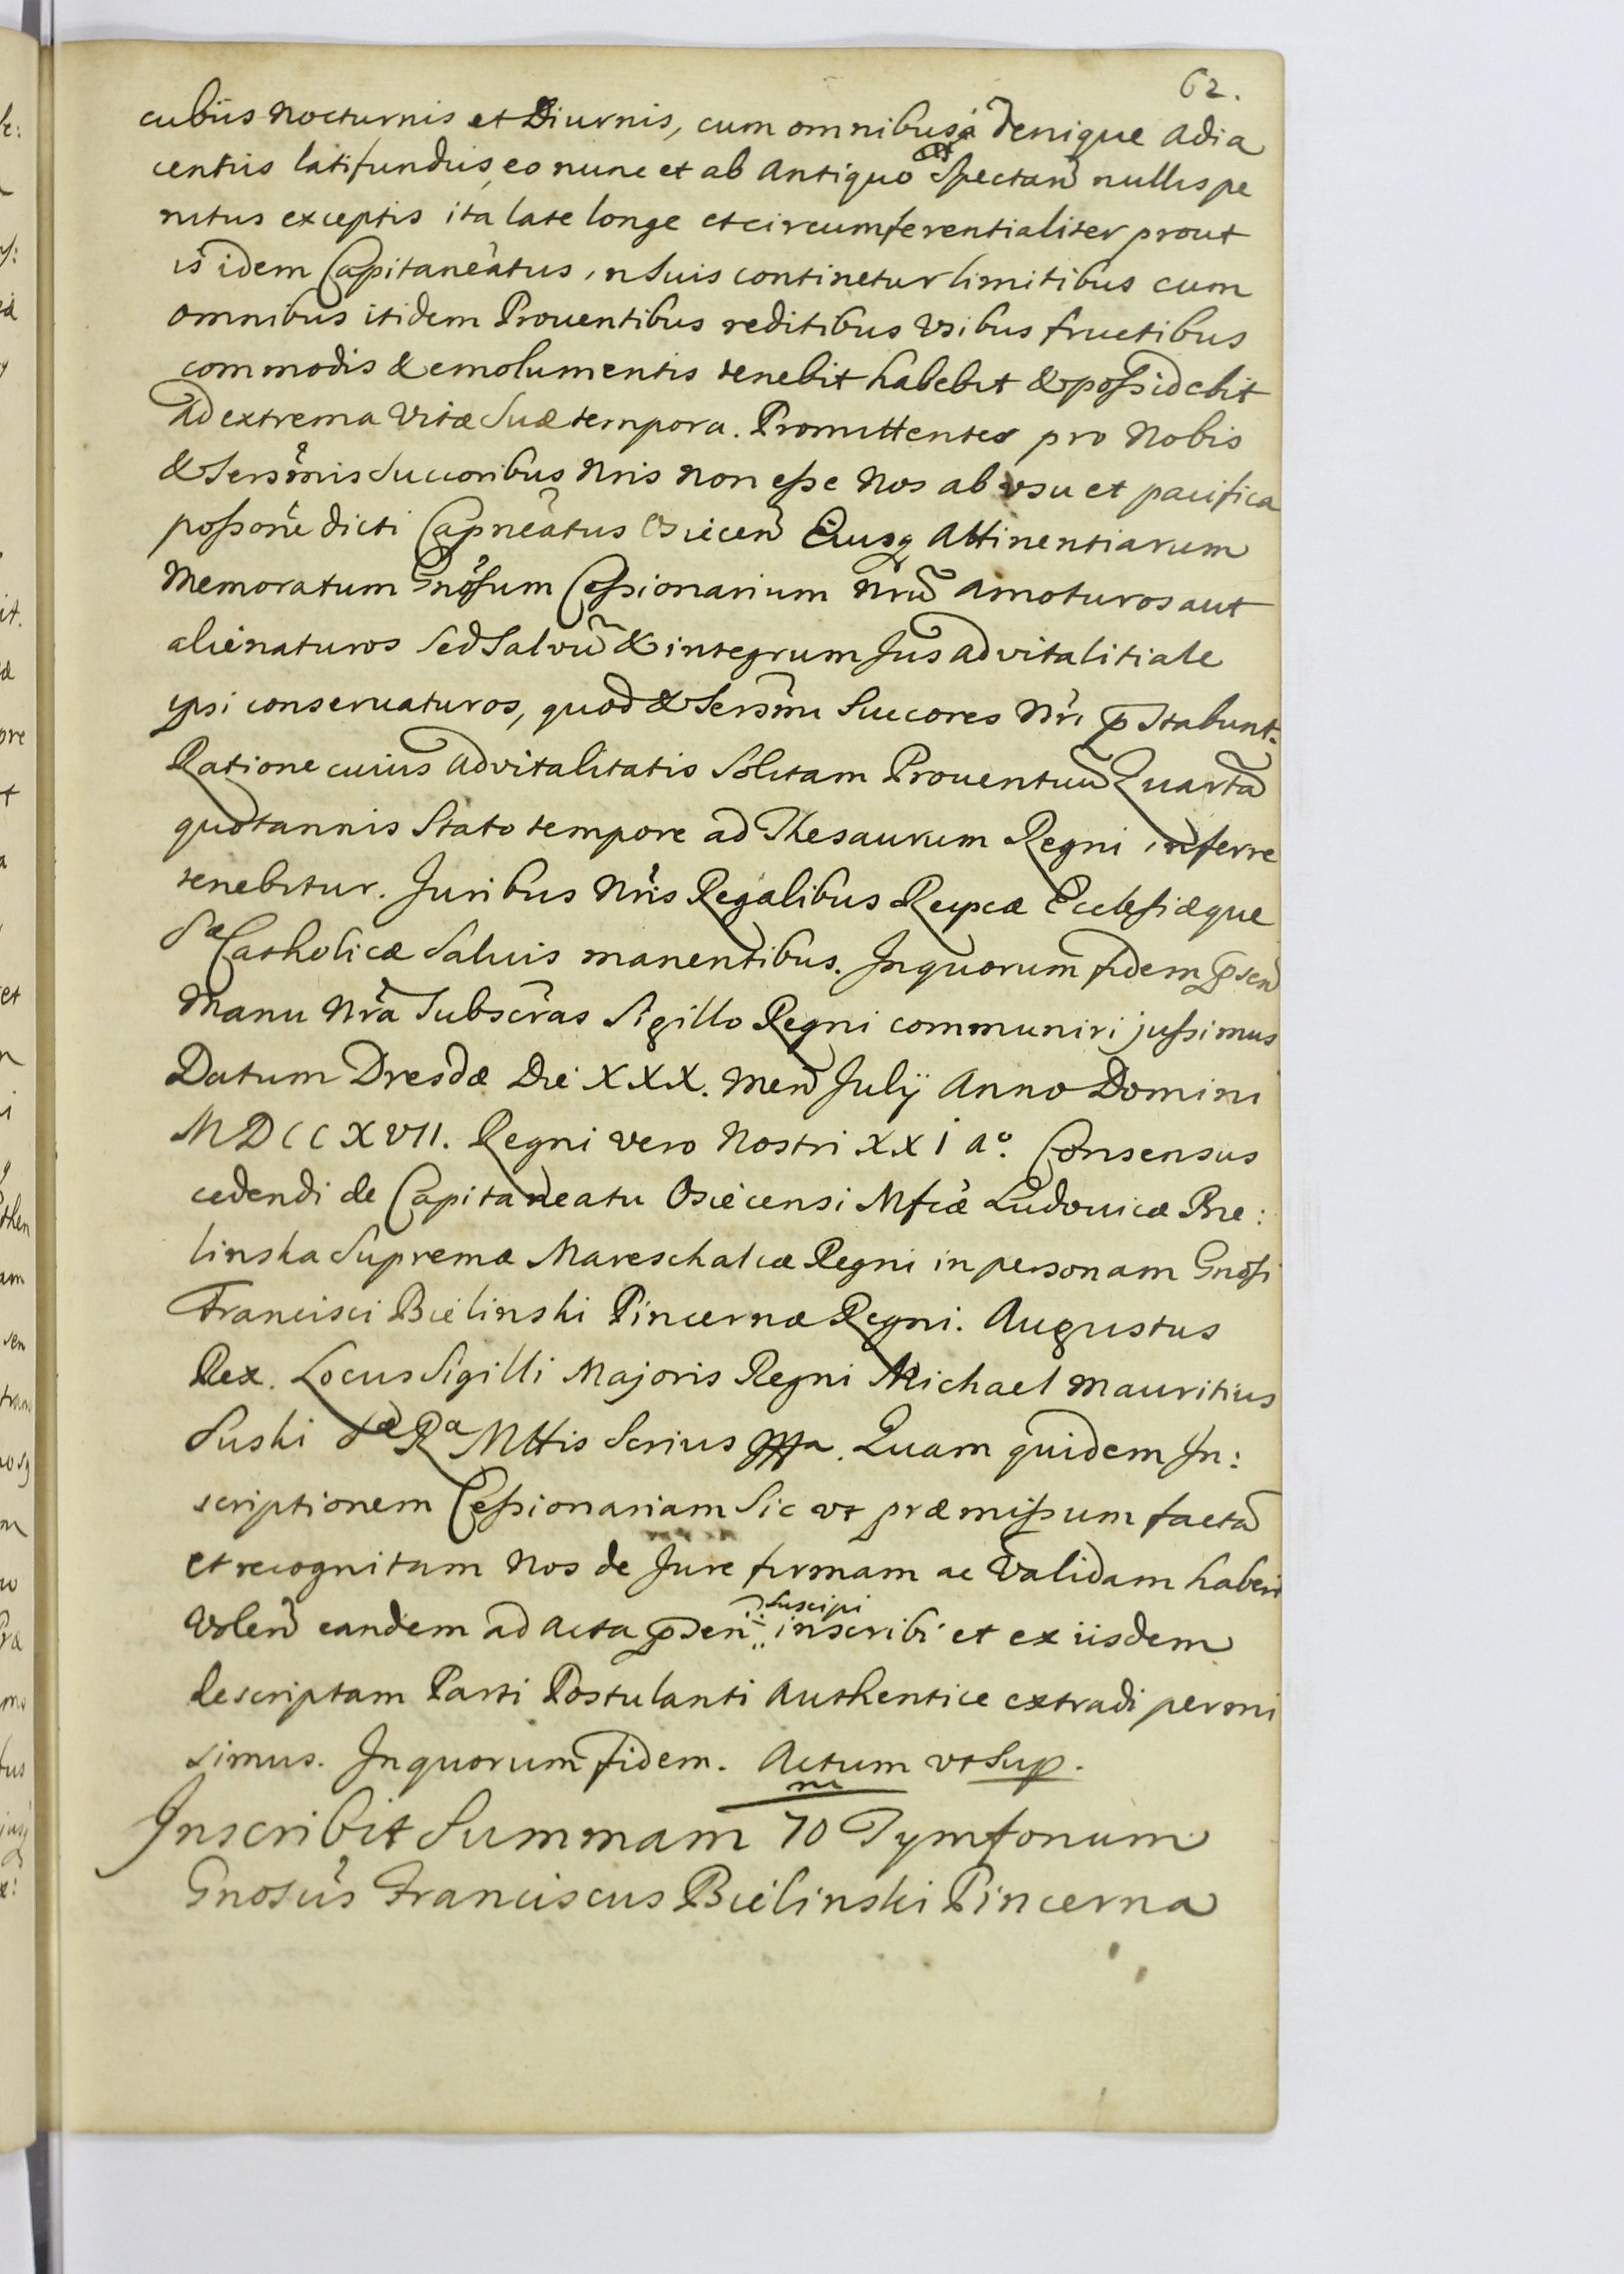 62.
cubiis Nocturnis et Diurnis, cum omnibus denique Adia
centiis latifundiis, eo nunc et ab Antiquo Spectan nullis pe
nitus exceptis ita late longe et circumferentialiter prout
is idem Capitaneatus in Suis continetur limitibus cum
omnibus itidem Prouentibus reditibus Usibus fructibus
commodis & emolumentis tenebit habebit & possidebit
ad extrema Vitæ Suæ tempora. Promittentes pro Nobis
& Sersmis Succoribus Nris Non esse Nos ab usu et pacifica
possone dicti Capneatus Osiecen Eiusq Attinentiarum
Memoratum Gnosum Cessionarium Nrum Amoturos aut
alienaturos Sed Salvu & integrum Jus advitalitiale
ipsi conseruaturos, quod & Sersmi Succores Nri pstabunt.
Ratione cuius Advitalitatis Solitam Prouentuu Quarta
quotannis Stato tempore ad Thesaurum Regni inferre
tenebitur. Juribus Nris Regalibus Reipcæ Ecclesiæque
Sæ Catholicæ Saluis manentibus. In quorum fidem psen
Manu Nra Subscras Sigillo Regni communiri jussimus
Datum Dresdæ Die XXX. Men July Anno Domini
MDCCXVII. Regni vero Nostri XXI Ao. Consensus
cedendi de Capitaneatu Osiecensi Mfcæ Ludouicæ Bie:
linska Supremæ Mareschalcæ Regni in personam Gnosi
Francisci Bielinski Pincernæ Regni. Augustus
Rex. Locus Sigilli Majoris Regni Michael Mauritius
Suski Sæ Ræ Mttis Scrius mpa. Quam quidem In:
scriptionem Cessionariam Sic ut præmissum facta
et recognitam Nos de Jure firmam ac Validam haberi
Volen eandem ad Acta psen suscipi inscribi et ex iisdem
descriptam Parti Postulanti Authentice extradi permi
simus. In quorum fidem. Actum ut Sup.
Inscribit Summam 70 m Tymfonum
Gnosus Franciscus Bielinski Pincerna